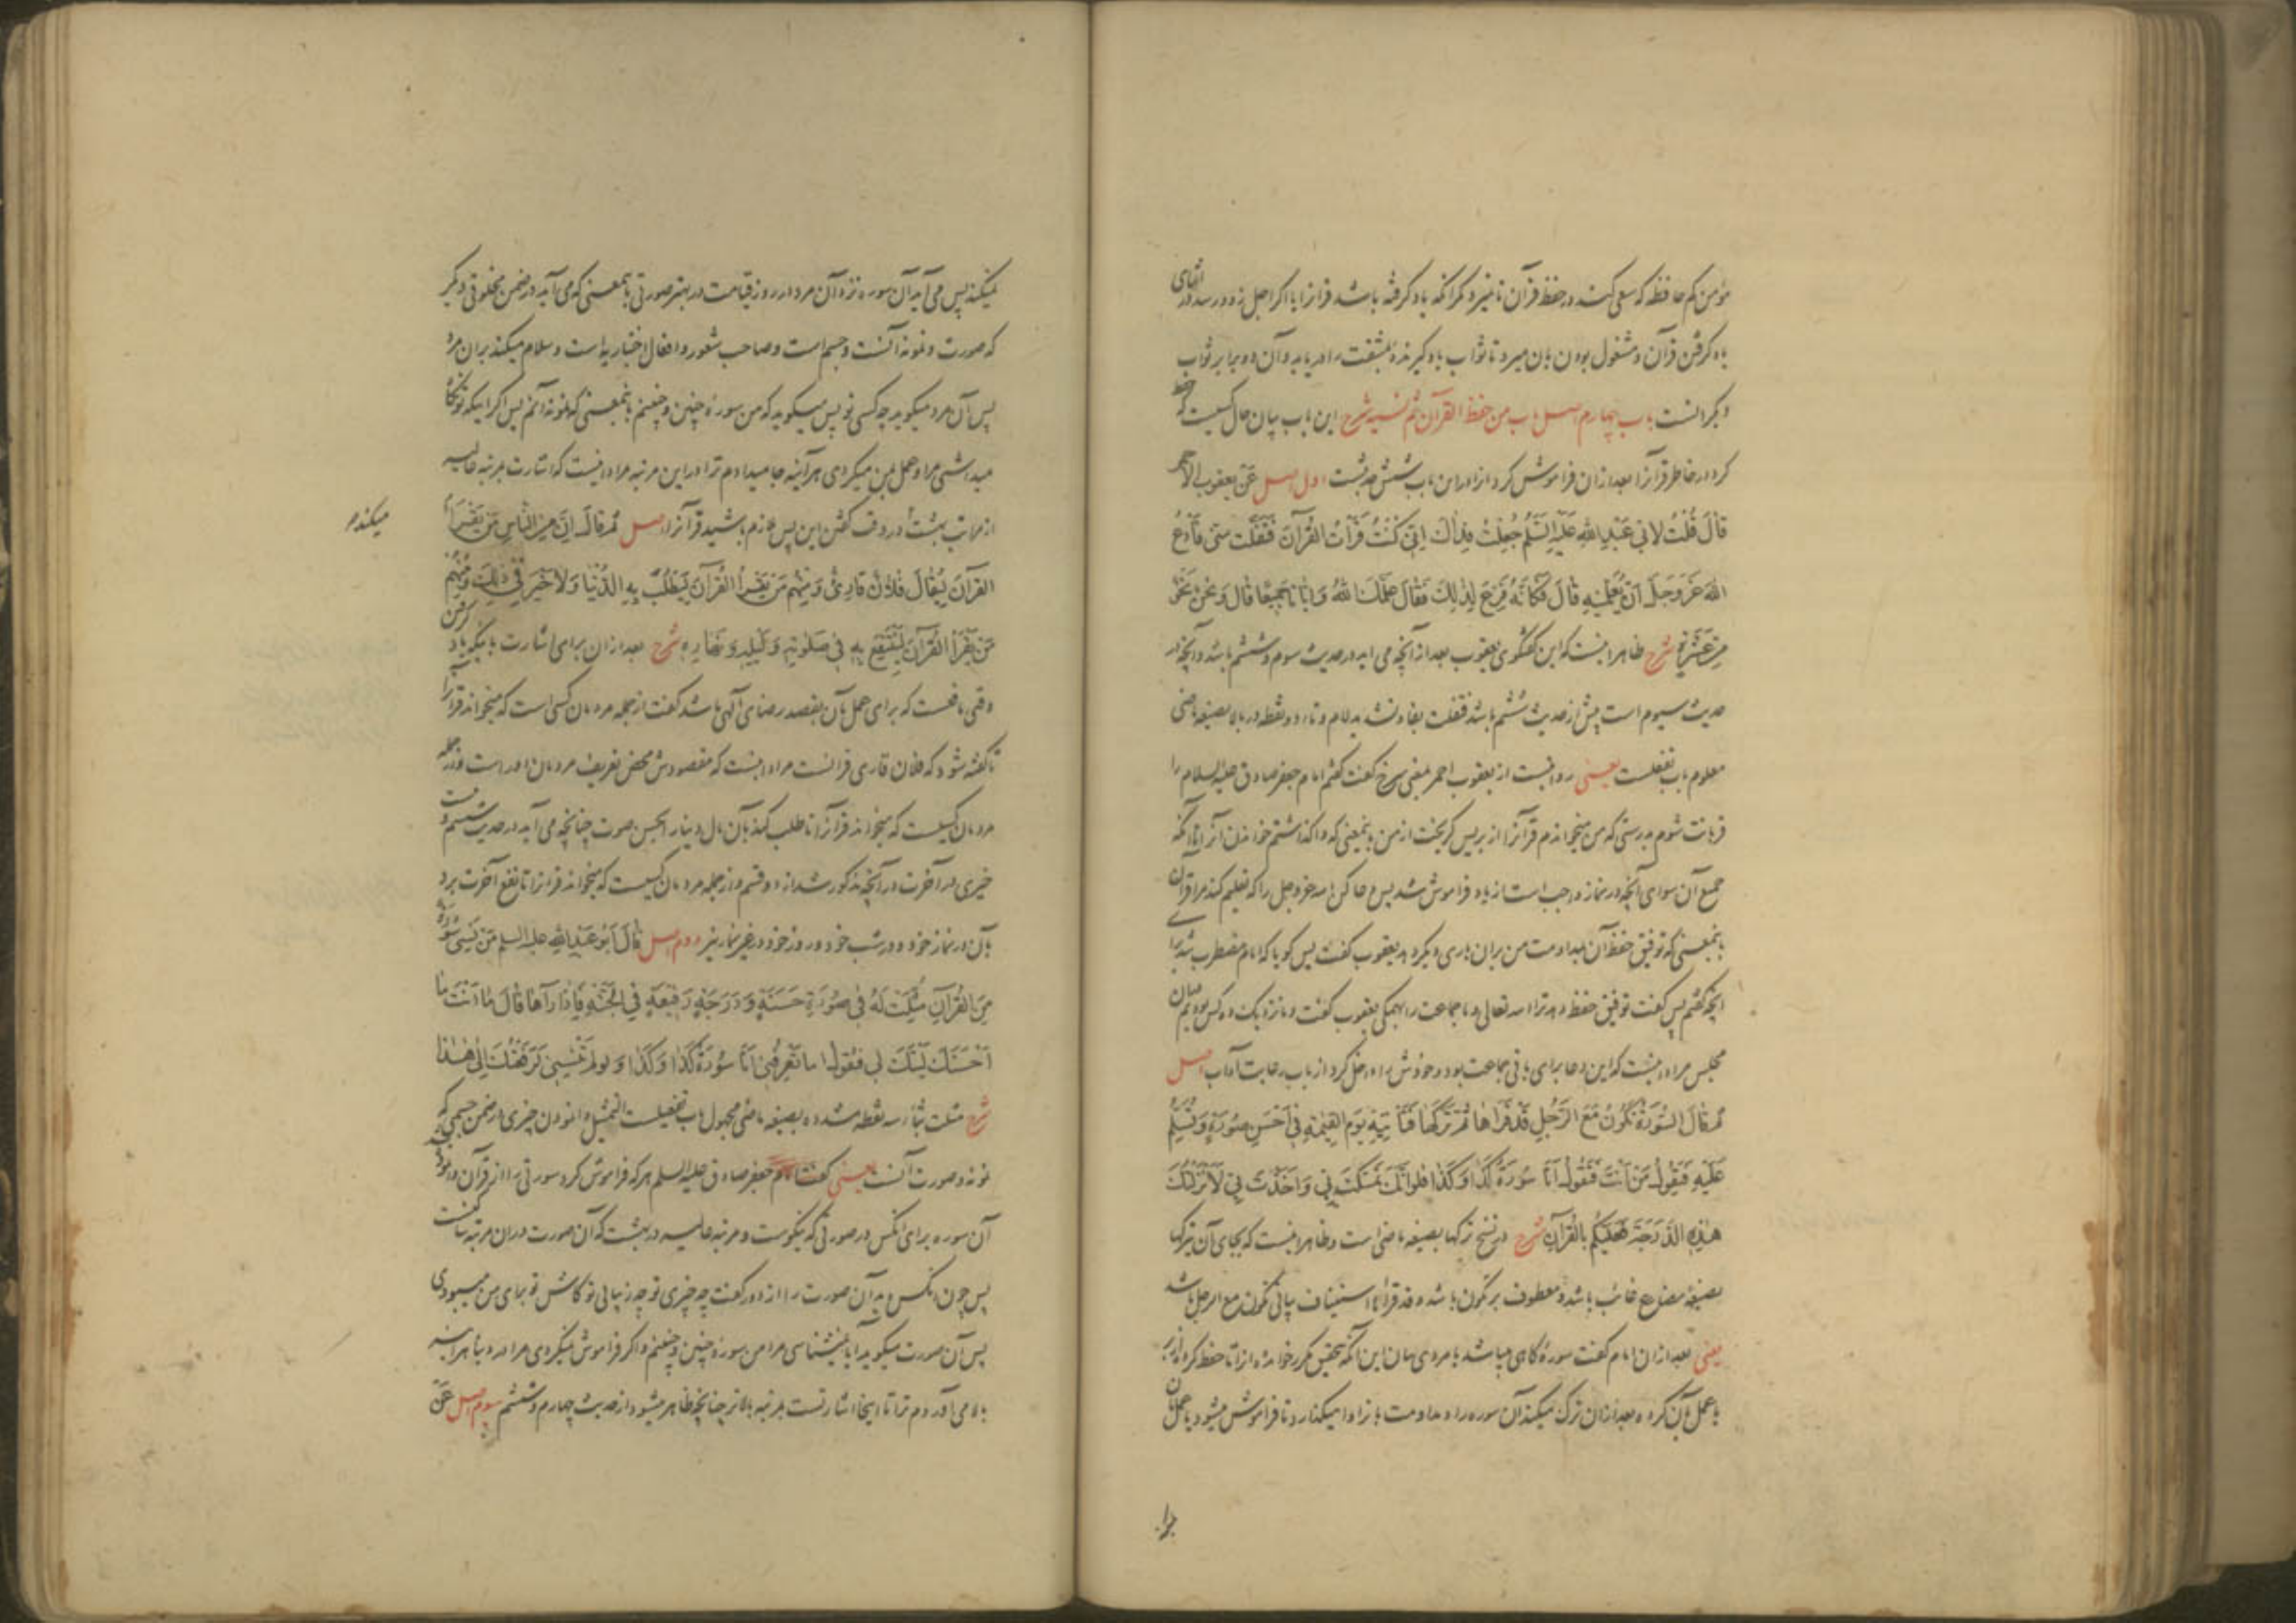 مؤمن کم حافظه که سعی کند در حفظ قرآن تا نمیرد مگر آنکه یاد گرفته باشد قرآنرا یا اگر اجل زود رسد در اثنای
یاد گرفتن قرآن و مشغول بودن بآن میرد تا ثواب یاد گیرنده بمشقت را دریابد و آن دو برابر ثواب
دیگرانست باب چهارم اصل باب من حفظ القرآن ثم نسیه شرح این باب بیان حال کسیست که حفظ
کرد در خاطر قرآنرا بعد ازان فراموش کرد انرا درین باب شش حدیثست اول اصل عَنْ یعقوب الاحمر
قالَ قُلْتُ لِاَبی عَبْدِ اللهِ عَلَیْهِ السَّلَمُ جُعِلْتُ فِدٰاكَ اِنّی كُنْتُ قَرَأْتُ القُرآنَ فَفَلَّتَ مِنّی فَادْعُ
اللهَ عَزَّوَجَلَّ اَنْ یُعَلِّمَنِیهِ قالَ فَکَاَنَّهُ فَزِعَ لِذٰلِكَ فَقالَ عَلَّمَكَ اللهُ وَاِیّانا جَمیعًا قالَ وَنَحْنُ نَحْوٌ
مِنْ عَشَرَةٍ شرح ظاهر اینست که این گفتگوی یعقوب بعد از آنچه می اید در حدیث سوم و ششم باشد و آنچه در
حدیث سیوم است پیش از حدیث ششم باشد ففلت بفاء و تشدید لام و تاء دو نقطه در بالا بصیغه ماضی
معلوم باب تفعلست یعنی روایتست از یعقوب احمر یعنی سرخ گفت گفتم امام جعفر صادق علیه السلام را
قربانت شوم بدرستی که من میخواندم قرآنرا از بر پس گریخت از من باینمعنی که واگذاشتم خواندن آنرا تا آنکه
جمیع آن سوای آنچه در نماز واجب است از یاد فراموش شد پس دعا کن الله عزوجل را که تعلیم کند مرا قرآن
باینمعنی که توفیق حفظ آن بمداومت من بران باری دیگر دهد یعقوب گفت پس گویا که امام مضطرب شد برای
آنچه گفتم پس گفت توفیق حفظ دهد ترا الله تعالی و ما جماعت را همگی یعقوب گفت و ما نزدیک ده کس بودیم دران
مجلس مراد اینست که این دعا برای باقی جماعت بود و خودش را داخل کرد از باب رعایت آداب اصل
ثُمَّ قالَ السُّورَةُ تَكُونُ مَعَ الرَّجُلِ قَدْ قَرَأَها ثُمَّ تَرَكَها فَتَأْتِیهِ یَوْمَ القِیٰمَةِ فی اَحْسَنِ صُورَةٍ وَتُسَلِّمُ
عَلَیْهِ فَیَقُولُ مَنْ اَنْتَ فَتَقُولُ اَنَا سُورَةُ كَذٰا وَكَذٰا فَلَوْ اَنَّكَ تَمَسَّكْتَ بی وَاَخَذْتَ بی لَاَنْزَلْتُكَ
هٰذِهِ الدَّرَجَةَ فَعَلَیْكُمْ بِالْقُرْآنِ شرح در نسخ ترکها بصیغه ماضی است و ظاهر اینست که بجای آن یترکها
بصیغهٔ مضارع غائب باشد و معطوف بر تکون باشد و قد قرأها استیناف بیانی تکون مع الرجل باشد
یعنی بعد ازان امام گفت سورهٔ گاهی میباشد با مردی بیان این آنکه بتحقیق مکرر خوانده انرا تا حفظ کرده انرا
یا عمل بآن کرده بعد ازان ترک میکند آن سوره را و مداومت بانرا وا میگذارد تا فراموش میشود یا عمل بآن
نمیکند پس می آید آن سوره نزد آن مرد در روز قیامت در بهتر صورتی باینمعنی که می آید در ضمن مخلوقی دیگر
که صورت و نمونه آنست و جسم است و صاحب شعور و افعال اختیاریه است و سلام میکند بران مرد
پس آن مرد میگوید چه کسی تو پس میگوید که من سوره چنین و چنینم باینمعنی که نمونه آنم پس اگر اینکه تو نگاه
میداشتی مرا و عمل بمن میکردی هرآینه جا میدادم ترا در این مرتبه مراد اینست که اشارت بمرتبه عالیه
از مراتب بهشت در وقت گفتن این پس لازم باشید قرآنرا اصل ثُمَّ قالَ اِنَّ مِنَ النّاسِ مَنْ یَقْرَأُ
میکند م
القرآنَ لِیُقالَ فُلانٌ قارِئٌ وَمِنْهُمْ مَنْ یَقْرَأُ القُرآنَ لِیَطْلُبَ بِهِ الدُّنْیا وَلا خَیْرَ فی ذٰلِكَ وَمِنْهُمْ
مَنْ یَقْرَأُ القُرآنَ لِیَنْتَفِعَ بِهِ فی صَلوتِهِ وَلَیْلِهِ وَنَهارِهِ شرح بعد ازان برای اشارت باینکه یاد گرفتن
وقتی نافعست که برای عمل بآن بقصد رضای الهی باشد گفت از جمله مردمان کسی است که میخواند قرآنرا
تا گفته شود که فلان قاری قرآنست مراد اینست که مقصودش محض تعریف مردمان اوراست و از جمله
مردمان کسیست که میخواند قرآنرا تا طلب کند بآن مال دینار بحسن صوت چنانچه می آید در حدیث ششم و نیست
خیری در آخرت در آنچه مذکور شد از دو قسم و از جمله مردمان کسیست که میخواند قرآنرا تا نفع آخرت برد
بآن در نماز خود و در شب خود و روز خود در غیر نماز نیز دوم اصل قالَ اَبُو عَبْدِ اللهِ علیه السلم مَنْ نَسِیَ سُورَةً
مِنَ القُرآنِ مُثِّلَتْ لَهُ فی صُورَةٍ حَسَنَةٍ وَدَرَجَةٍ رَفیعَةٍ فِی الجَنَّةِ فَاِذٰا رَآها قالَ ما اَنْتِ ما
اَحْسَنَكِ لَیْتَكِ لی فَتَقُولُ اَما تَعْرِفُنی اَنَا سُورَةُ كَذٰا وَكَذٰا وَلَوْ لَمْ تَنْسَنی لَرَفَعْتُكَ اِلیٰ هٰذا
شرح مثلت بثاء سه نقطه مشدده بصیغه ماضی مجهول باب تفعیلست التمثیل وانمودن چیزی در ضمن جسمی که
نمونه و صورت آنست یعنی گفت امام جعفر صادق علیه السلم هر که فراموش کرد سورتی را از قرآن وانموده شد
آن سوره برای آنکس در صورتی که نیکوست و مرتبه عالیه در بهشت که آن صورت دران مرتبه ساکنست
پس چون آنکس دید آن صورت را از دور گفت چه چیزی تو چه زیبائی تو کاش تو برای من میبودی
پس آن صورت میگوید آیا نمیشناسی مرا من سوره چنین و چنینم و اگر فراموش نمیکردی مرا در دنیا هرآینه
بالا می آوردم ترا تا اینجا اشارتست بمرتبه بالاتر چنانچه ظاهر میشود از حدیث چهارم و ششم سوم اصل عَنْ